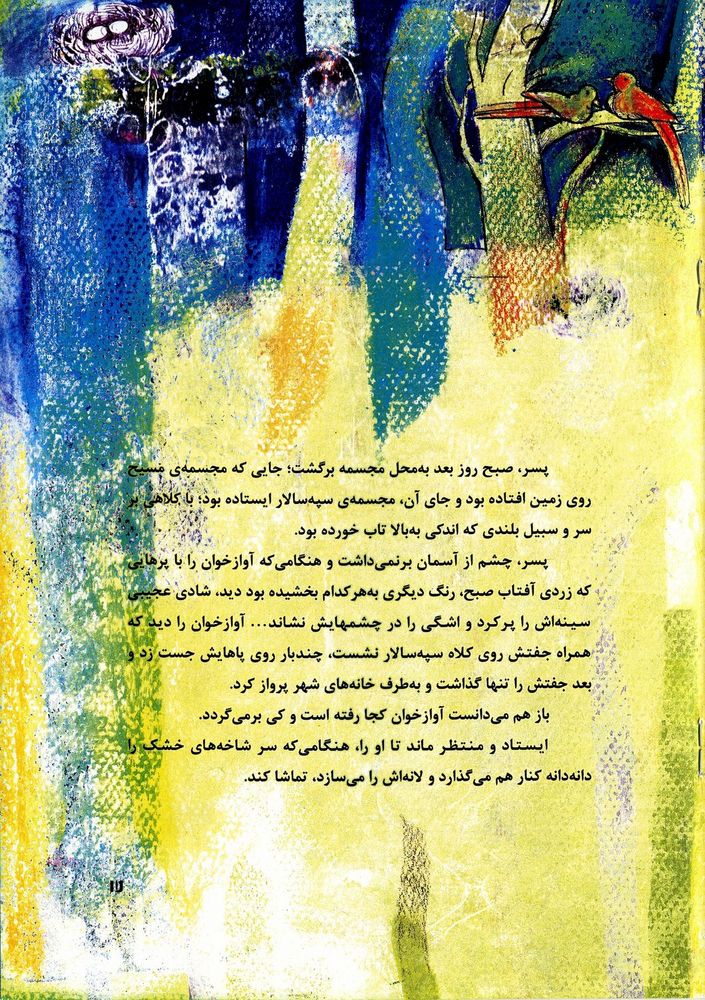 پسر، صبح روز بعد به‌محل مجسمه برگشت؛ جایی که مجسمه‌ی مسیح
روی زمین افتاده بود و جای آن، مجسمه‌ی سپه‌سالار ایستاده بود؛ با کلاهی بر
سر و سبیل بلندی که اندکی به‌بالا تاب خورده بود.
پسر، چشم از آسمان برنمی‌داشت و هنگامی‌که آوازخوان را با پرهایی
که زردی آفتاب صبح، رنگ دیگری به‌هرکدام بخشیده بود دید، شادی عجیبی
سینه‌اش را پرکرد و اشگی را در چشمهایش نشاند... آوازخوان را دید که
همراه جفتش روی کلاه سپه‌سالار نشست، چندبار روی پاهایش جست زد و
بعد جفتش را تنها گذاشت و به‌طرف خانه‌های شهر پرواز کرد.
باز هم می‌دانست آوازخوان کجا رفته است و کی برمی‌گردد.
ایستاد و منتظر ماند تا او را، هنگامی‌که سر شاخه‌های خشک را
دانه‌دانه کنار هم می‌گذارد و لانه‌اش را می‌سازد، تماشا کند.